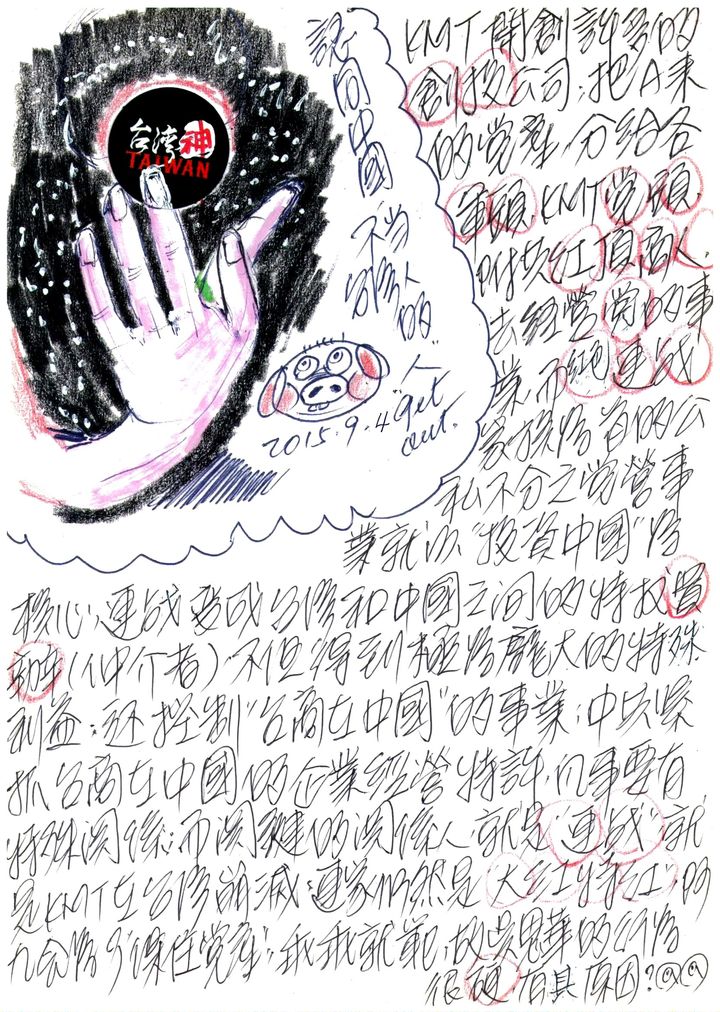 台湾神
TAIWAN
認同中國
不当
台湾人
的
"人"
get
out.
2015.9.4
KMT開創許多的
創投公司,把A来
的党產,分給各
軍頭,KMT党頭,
附共紅頂商人,
去經營党的事
業,而 連战
家族為首的公
私不分之党營事
業就以"投資中國"為
核心,連战变成台湾和中國之间的特权
(仲介者),不但得到極為龐大的特殊
利益;还控制"台商在中國"的事業;中共緊
抓台商在中國的企業經營特許,凡事要有
特殊関係;而関鍵的関係人,就是"連战",就
是KMT在台湾崩滅,連家仍然是"大红特红"的
為了"保住党產",
很硬,有其原因?